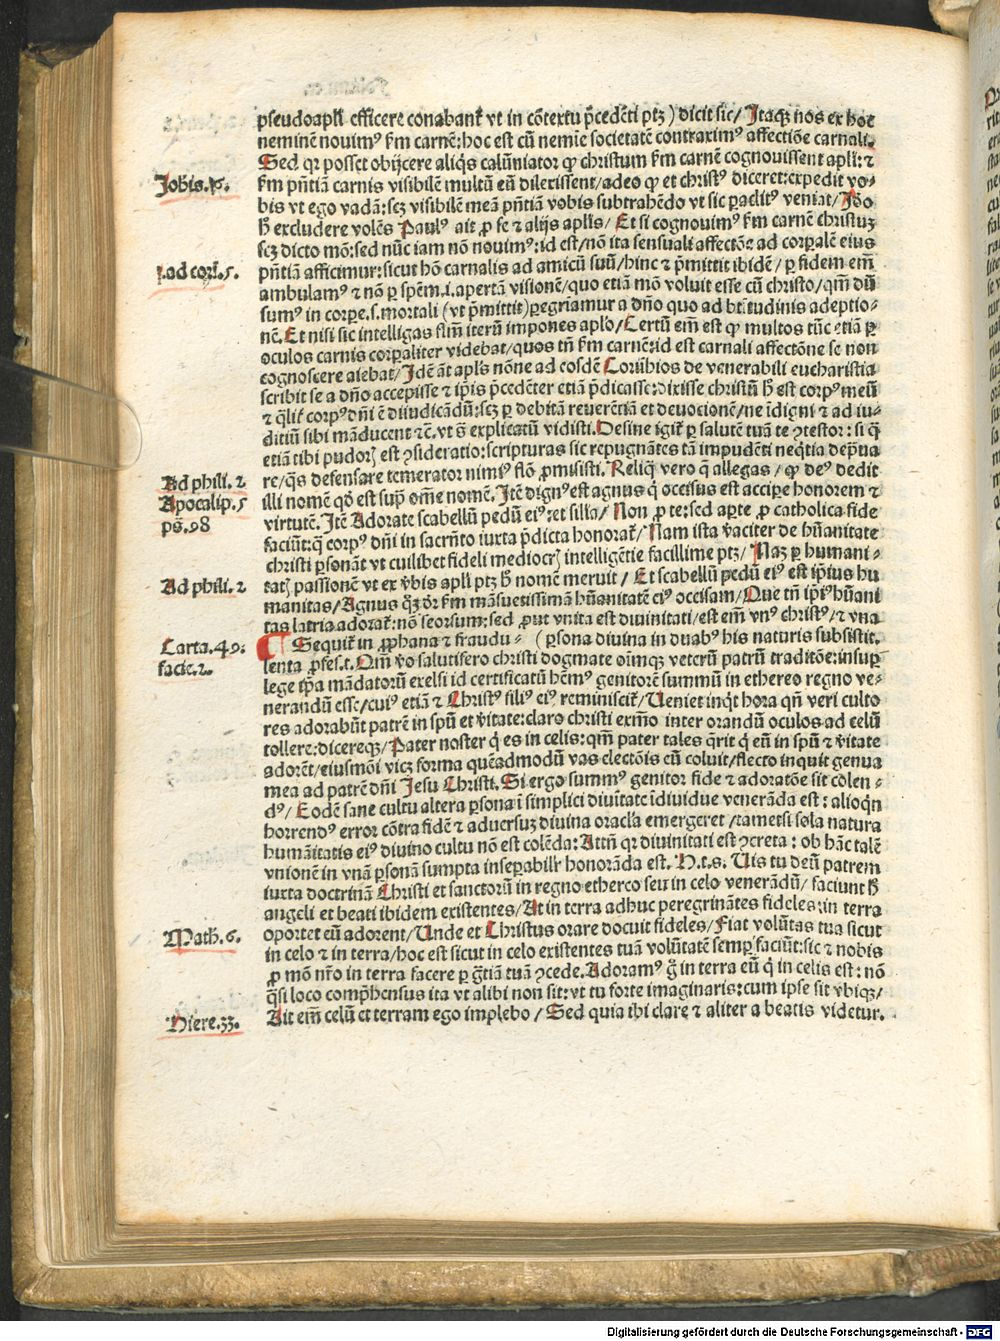 pseudoapl̄i efficere conabant᷑ vt in cōtextu p̄cedēti ptꝫ) dicit sic/ Itaqꝫ nos ex hoc
neminē nouimꝰ ẜm carnē: hoc est cū nemīe societatē contraximꝰ affectiōe carnali.
Sed qꝛ posset obijcere aliq̄s calūniator ꝙ christum ẜm carnē cognouissent apl̄i: ⁊
Johīs. 16. ẜm p̄ntiā carnis visibilē multū eū dilexissent/ adeo ꝙ et christꝰ diceret: expedit vo-
bis vt ego vadā: scꝫ visibilē meā p̄ntiā vobis subtrahēdo vt sic ꝑaclitꝰ veniat/ Ido
h̄ excludere volēs Paulꝰ ait ꝓ se ⁊ alijs apl̄is/ Et si cognouimꝰ ẜm carnē christuꝫ
scꝫ dicto mō: sed nūc iam nō nouimꝰ: id est/ nō ita sensuali affectōe ad corꝑalē eius
1. ad corī. 5. p̄ntiā afficimur: sicut hō carnalis ad amicū suū/ hinc ⁊ p̄mittit ibidē/ ꝑ fidem em̄
ambulamꝰ ⁊ nō ꝑ spēm .i. apertā visionē/ quo etiā mō voluit esse cū christo/ qm̄ dū
sumꝰ in corꝑe .s. mortali (vt p̄mittit) ꝑegrīamur a dn̄o quo ad btītudinis adeptio-
nē. Et nisi sic intelligas fl̄m iterū impones apl̄o/ Certū em̄ est ꝙ multos tūc etiā ꝑ
oculos carnis corꝑaliter videbat/ quos tn̄ ẜm carnē: id est carnali affectōne se non
cognoscere aiebat/ Idē āt apl̄s nōne ad eosdē Corinthios de venerabili eucharistia
scribit se a dn̄o accepisse ⁊ ip̄is p̄cedēter etiā p̄dicasse: dixisse christū h̄ est corpꝰ meū
⁊ q̄libꝫ corpꝰ dn̄i ē diiudicādū: scꝫ ꝑ debitā reuerētiā et deuocionē/ ne īdigni ⁊ ad iu-
ditiū sibi māducent ⁊c̄. vt s̄ explicatū vidisti. Desine igit᷑ ꝑ salutē tuā te ꝯtestor: si q̄
etiā tibi pudorꝫ est ꝯsideratio: scripturas sic repugnātes tā impudēti neq̄tia dep̄ua
Ad phili. 2 re/ q̄s defensare temerator nimiꝰ stō ꝓmisisti. Reliq̄ vero q̄ allegas/ ꝙ deꝰ dedit
Apocalip. 5 illi nomē qd̄ est suꝑ om̄e nomē. Itē dignꝰ est agnus q̇ occisus est acciꝑe honorem ⁊
ps̄. 98 virtutē. Itē Adorate scabellū pedū eiꝰ: et silia/ Non ꝓ te: sed aꝑte ꝓ catholica fide
faciūt: q̄ corpꝰ dn̄i in sacrn̄to iuxta p̄dicta honorat᷑/ Nam ista v̄aciter de hūanitate
christi ꝑsonāt vt cuilibet fideli mediocrꝫ intelligētie facillime ptꝫ/ Naꝫ ꝑ humani-
Ad phili. 2 tatꝫ passionē vt ex v̄bis apl̄i ptꝫ h̄ nomē meruit/ Et scabellū pedū eiꝰ est ip̄ius hu
manitas/ Agnus q̇ꝫ dr̄ ẜm māsuetissimā hūanitatē eiꝰ occisam/ Que tn̄ ip̄iꝰ hūani
tas latria adorat᷑: nō seorsum: sed ꝓut vnita est diuinitati/ est em̄ vnꝰ christꝰ/ ⁊ vna
Carta. 49. Sequit᷑ in ꝓphana ⁊ fraudu- (ꝑsona diuina in duabꝰ his naturis subsistit.
facie. 2. lenta ꝓfes. t. Om̄ v̄o salutifero christi dogmate oīmqꝫ veterū patrū traditōe: insuꝑ
lege ip̄a mādatorū exelsi id certificatū hēmꝰ genitorē summū in ethereo regno ve-
nerandū esse/ cuiꝰ etiā ⁊ Christꝰ filiꝰ eiꝰ reminiscit᷑/ Ueniet inq̇t hora qn̄ veri culto
res adorabūt patrē in spū et v̄itate: claro christi exm̄o inter orandū oculos ad celū
tollere: dicereqꝫ/ Pater noster q̇ es in celis: qm̄ pater tales q̄rit q̇ eū in spū ⁊ v̄itate
adorēt/ eiusmōi vicꝫ forma quēadmodū vas electōis eū coluit/ flecto inquit genua
mea ad patrē dn̄i Jesu Christi. Si ergo summꝰ genitor fide ⁊ adoratōe sit colen-
dꝰ/ Eodē sane cultu altera ꝑsona ī simplici diuītate īdiuidue venerāda est: alioqn̄
horrendꝰ error cōtra fidē ⁊ aduersuꝫ diuina oracl̄a emergeret/ tametsi sola natura
humāitatis eiꝰ diuino cultu nō est colēda: Attn̄ qꝛ diuinitati est ꝯcreta: ob hāc talē
vnionē in vnā ꝑsonā sumpta inseꝑabilr̄ honorāda est. H. t. s. Uis tu deū patrem
iuxta doctrinā Christi et sanctorū in regno ethereo seu in celo venerādū/ faciunt h̄
angeli et beati ibidem existentes/ At in terra adhuc peregrinātes fideles: in terra
Math. 6. oportet eū adorent/ Unde et Christus orare docuit fideles/ Fiat volūtas tua sicut
in celo ⁊ in terra/ hoc est sicut in celo existentes tuā volūtatē semꝑ faciūt: sic ⁊ nobis
ꝓ mō nr̄o in terra facere ꝑ gr̄tiā tuā ꝯcede. Adoramꝰ g̊ in terra eū q̇ in celis est: nō
q̄si loco comp̄hensus ita vt alibi non sit: vt tu forte imaginaris: cum ipse sit vbiqꝫ/
Hiere. 23. Ait em̄ celū et terram ego implebo/ Sed quia ibi clare ⁊ aliter a beatis videtur.
Digitalisierung gefördert durch die Deutsche Forschungsgemeinschaft - DFG